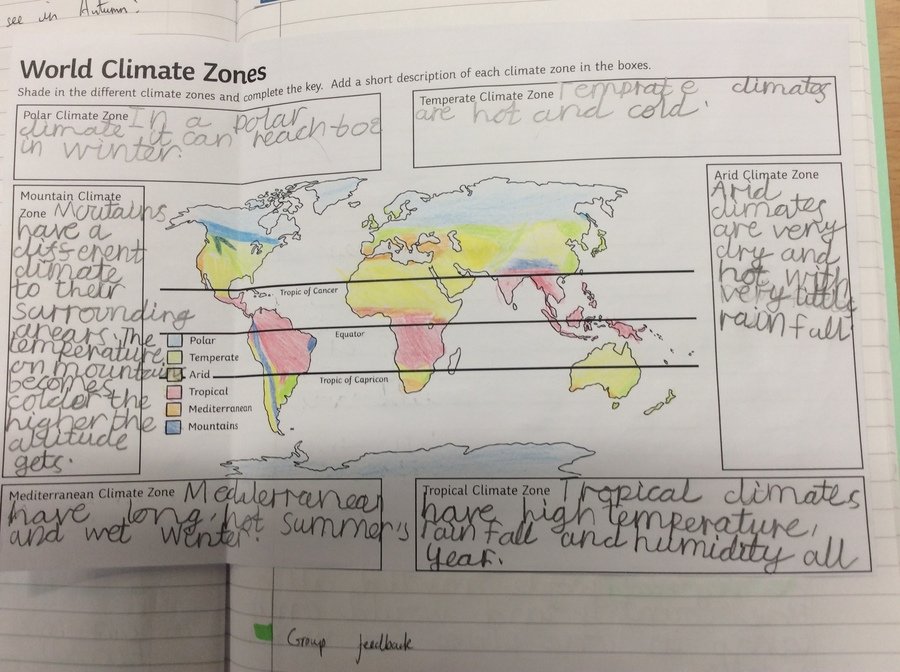 see in Autumn?
World Climate Zones
Shade in the different climate zones and complete the key. Add a short description of each climate zone in the boxes.
Polar Climate Zone In a polar
climate it can reach
in winter.
Temperate Climate Zone Temprate climates
are hot and cold.
Mountain Climate
Zone Moutains
have a
different
climate
to their
surrounding
arears. The
temperature
on mountains
becomes
colder the
higher the
altitude
gets.
Arid Climate Zone
Arid
climates
are very
dry and
hot with
very little
rainfall
Tropic of Cancer
Equator
Tropic of Capricorn
Polar
Temperate
Arid
Tropical
Mediterranean
Mountains
Mediterranean Climate Zone Mediterranean
have long, hot summer's
and wet winter.
Tropical Climate Zone Tropical climates
have high temperature,
rainfall and humidity all
year.
Group feedback